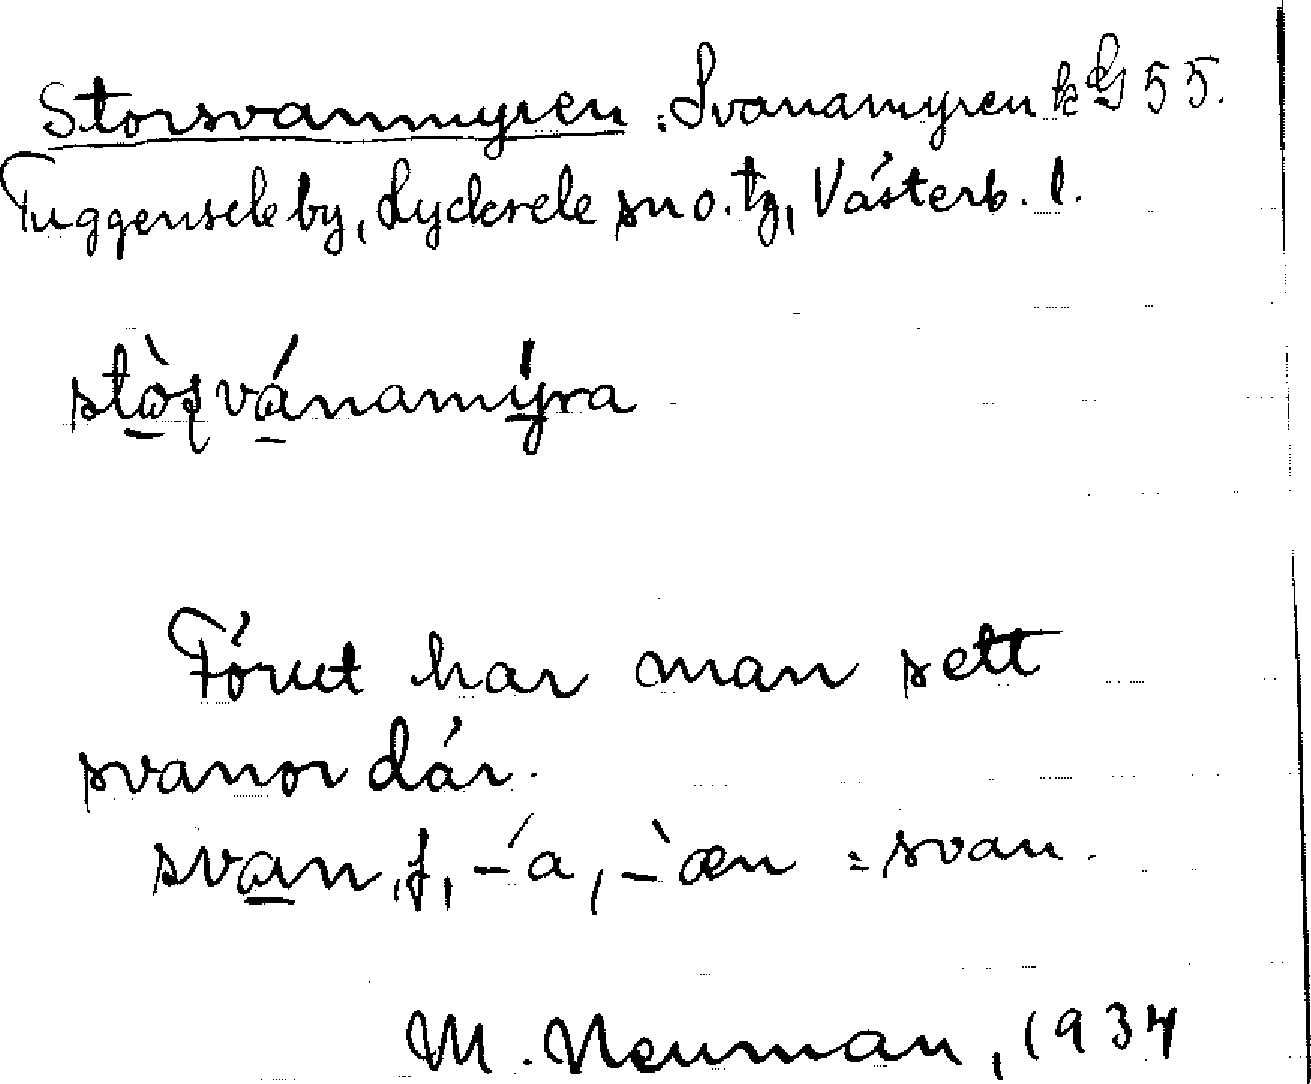 Storsvanmyren = Svanamyren k G 55.
Tuggensele by, Lycksele sn o. tg, Västerb. l.
stò̱s̩vá̱namý̱ra
Förut har man sett
svanor där.
sva̱n, f, -́a, -̀æn = svan.
M. Neuman, 1934